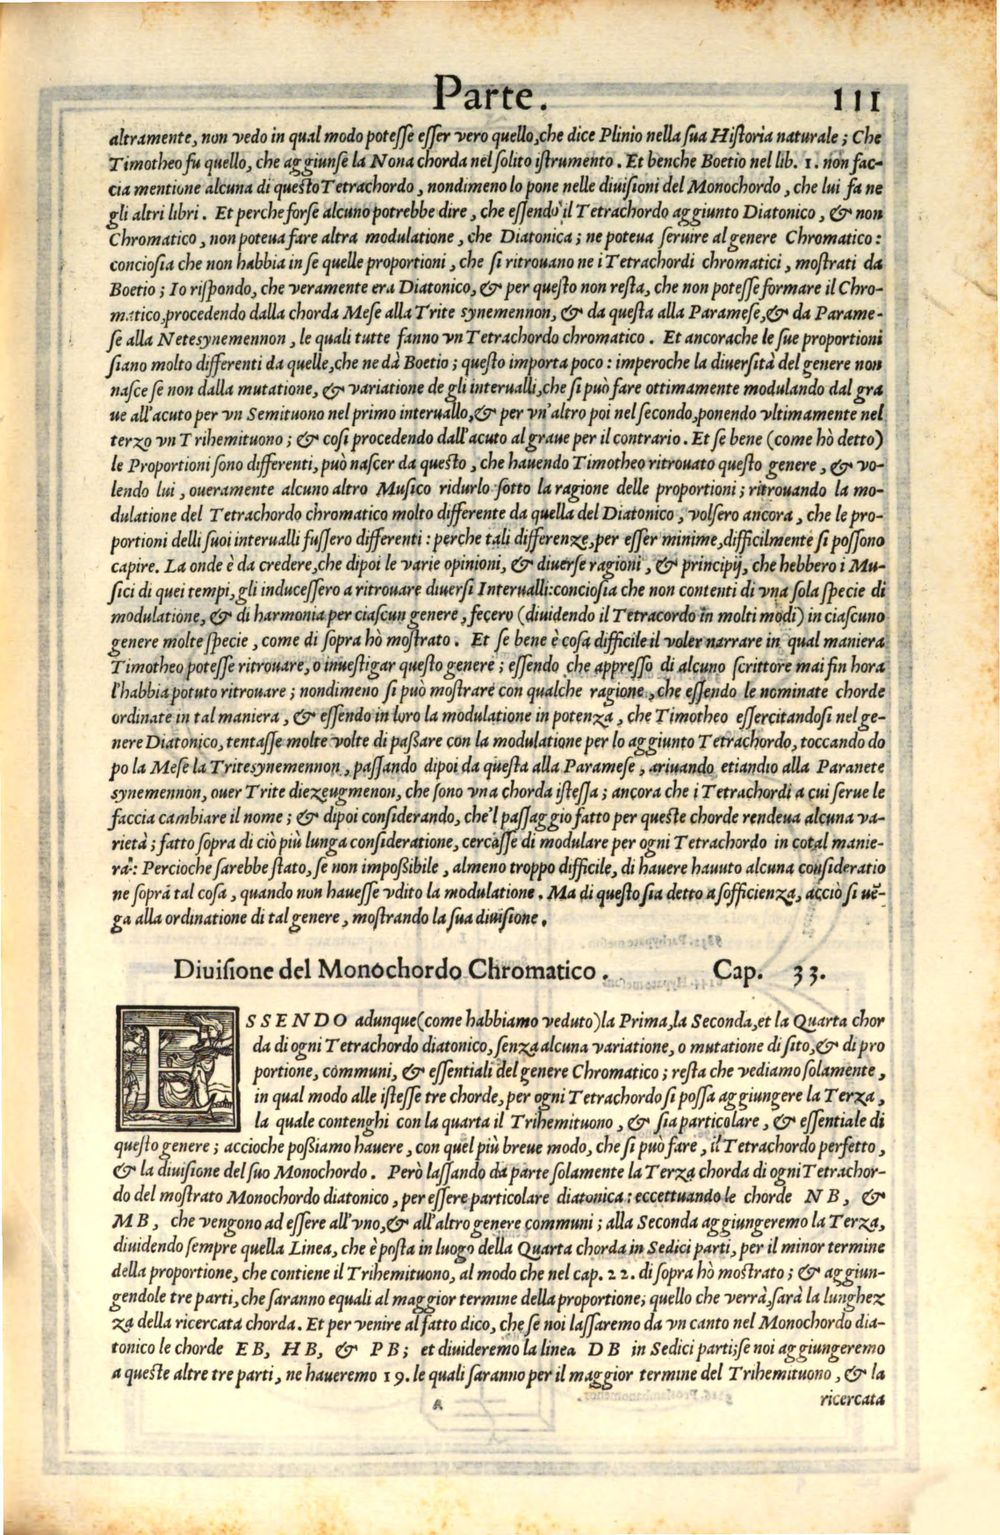 Parte. 111
altramente, non vedo in qual modo poteſſe eſſer vero quello, che dice Plinio nella ſua Hiſtoria naturale; Che
Timotheo fu quello, che aggiunſe la Nona chorda nel ſolito iſtrumento. Et benche Boetio nel lib. 1. non fac-
cia mentione alcuna di queſto Tetrachordo, nondimeno lo pone nelle diuiſioni del Monochordo, che lui fa ne
gli altri libri. Et perche forſe alcuno potrebbe dire, che eſſendo il Tetrachordo aggiunto Diatonico, & non
Chromatico, non poteua fare altra modulatione, che Diatonica; ne poteua ſeruire al genere Chromatico:
concioſia che non habbia in ſe quelle proportioni, che ſi ritrouano ne i Tetrachordi chromatici, moſtrati da
Boetio; Io riſpondo, che veramente era Diatonico, & per queſto non reſta, che non poteſſe formare il Chro-
matico, procedendo dalla chorda Meſe alla Trite synemennon, & da queſta alla Parameſe, & da Parame-
ſe alla Neteſynemennon, le quali tutte fanno vn Tetrachordo chromatico. Et ancorache le ſue proportioni
ſiano molto differenti da quelle, che ne dà Boetio; queſto importa poco: imperoche la diuerſità del genere non
naſce ſe non dalla mutatione, & variatione de gli interualli, che ſi può fare ottimamente modulando dal gra
ue all'acuto per vn Semituono nel primo interuallo, & per vn'altro poi nel ſecondo, ponendo vltimamente nel
terzo vn Trihemituono; & coſi procedendo dall'acuto al graue per il contrario. Et ſe bene (come hò detto)
le Proportioni ſono differenti, può naſcer da queſto, che hauendo Timotheo ritrouato queſto genere, & vo-
lendo lui, oueramente alcuno altro Muſico ridurlo ſotto la ragione delle proportioni; ritrouando la mo-
dulatione del Tetrachordo chromatico molto differente da quella del Diatonico, volſero ancora, che le pro-
portioni delli ſuoi interualli fuſſero differenti: perche tali differenze, per eſſer minime, difficilmente ſi poſſono
capire. La onde è da credere, che dipoi le varie opinioni, & diuerſe ragioni, & principij, che hebbero i Mu-
ſici di quei tempi, gli induceſſero a ritrouare diuerſi Interualli: concioſia che non contenti di vna ſola ſpecie di
modulatione, & di harmonia per ciaſcun genere, fecero (diuidendo il Tetracordo in molti modi) in ciaſcuno
genere molte ſpecie, come di ſopra hò moſtrato. Et ſe bene è coſa difficile il voler narrare in qual maniera
Timotheo poteſſe ritrouare, o inueſtigar queſto genere; eſſendo che appreſſo di alcuno ſcrittore mai fin hora
l'habbia potuto ritrouare; nondimeno ſi può moſtrare con qualche ragione, che eſſendo le nominate chorde
ordinate in tal maniera, & eſſendo in loro la modulatione in potenza, che Timotheo eſſercitandoſi nel ge-
nere Diatonico, tentaſſe molte volte di paßare con la modulatione per lo aggiunto Tetrachordo, toccando do
po la Meſe la Triteſynemennon, paſſando dipoi da queſta alla Parameſe, ariuando etiandio alla Paranete
synemennon, ouer Trite diezeugmenon, che ſono vna chorda iſteſſa; ancora che i Tetrachordi a cui ſerue le
faccia cambiare il nome; & dipoi conſiderando, che'l paſſaggio fatto per queſte chorde rendeua alcuna va-
rietà; fatto ſopra di ciò più lunga conſideratione, cercaſſe di modulare per ogni Tetrachordo in cotal manie-
ra: Percioche ſarebbe ſtato, ſe non impoßibile, almeno troppo difficile, di hauere hauuto alcuna conſideratio
ne ſopra tal coſa, quando non haueſſe vdito la modulatione. Ma di queſto ſia detto a ſofficienza, acciò ſi uẽ-
ga alla ordinatione di tal genere, moſtrando la ſua diuiſione.
Diuiſione del Monochordo Chromatico. Cap. 33.
ESSENDO adunque (come habbiamo veduto) la Prima, la Seconda, et la Quarta chor
da di ogni Tetrachordo diatonico, ſenza alcuna variatione, o mutatione di ſito, & di pro
portione, communi, & eſſentiali del genere Chromatico; reſta che vediamo ſolamente,
in qual modo alle iſteſſe tre chorde, per ogni Tetrachordo ſi poſſa aggiungere la Terza,
la quale contenghi con la quarta il Trihemituono, & ſia particolare, & eſſentiale di
queſto genere; accioche poßiamo hauere, con quel più breue modo, che ſi può fare, il Tetrachordo perfetto,
& la diuiſione del ſuo Monochordo. Però laſſando da parte ſolamente la Terza chorda di ogni Tetrachor-
do del moſtrato Monochordo diatonico, per eſſere particolare diatonica: eccettuando le chorde NB, &
MB, che vengono ad eſſere all'vno, & all'altro genere communi; alla Seconda aggiungeremo la Terza,
diuidendo ſempre quella Linea, che è poſta in luogo della Quarta chorda in Sedici parti, per il minor termine
della proportione, che contiene il Trihemituono, al modo che nel cap. 22. di ſopra hò moſtrato; & aggiun-
gendole tre parti, che ſaranno equali al maggior termine della proportione; quello che verrà, ſarà la lunghez
za della ricercata chorda. Et per venire al fatto dico, che ſe noi laſſaremo da vn canto nel Monochordo dia-
tonico le chorde EB, HB, & PB; et diuideremo la linea DB in Sedici parti; ſe noi aggiungeremo
a queſte altre tre parti, ne haueremo 19. le quali ſaranno per il maggior termine del Trihemituono, & la
ricercata